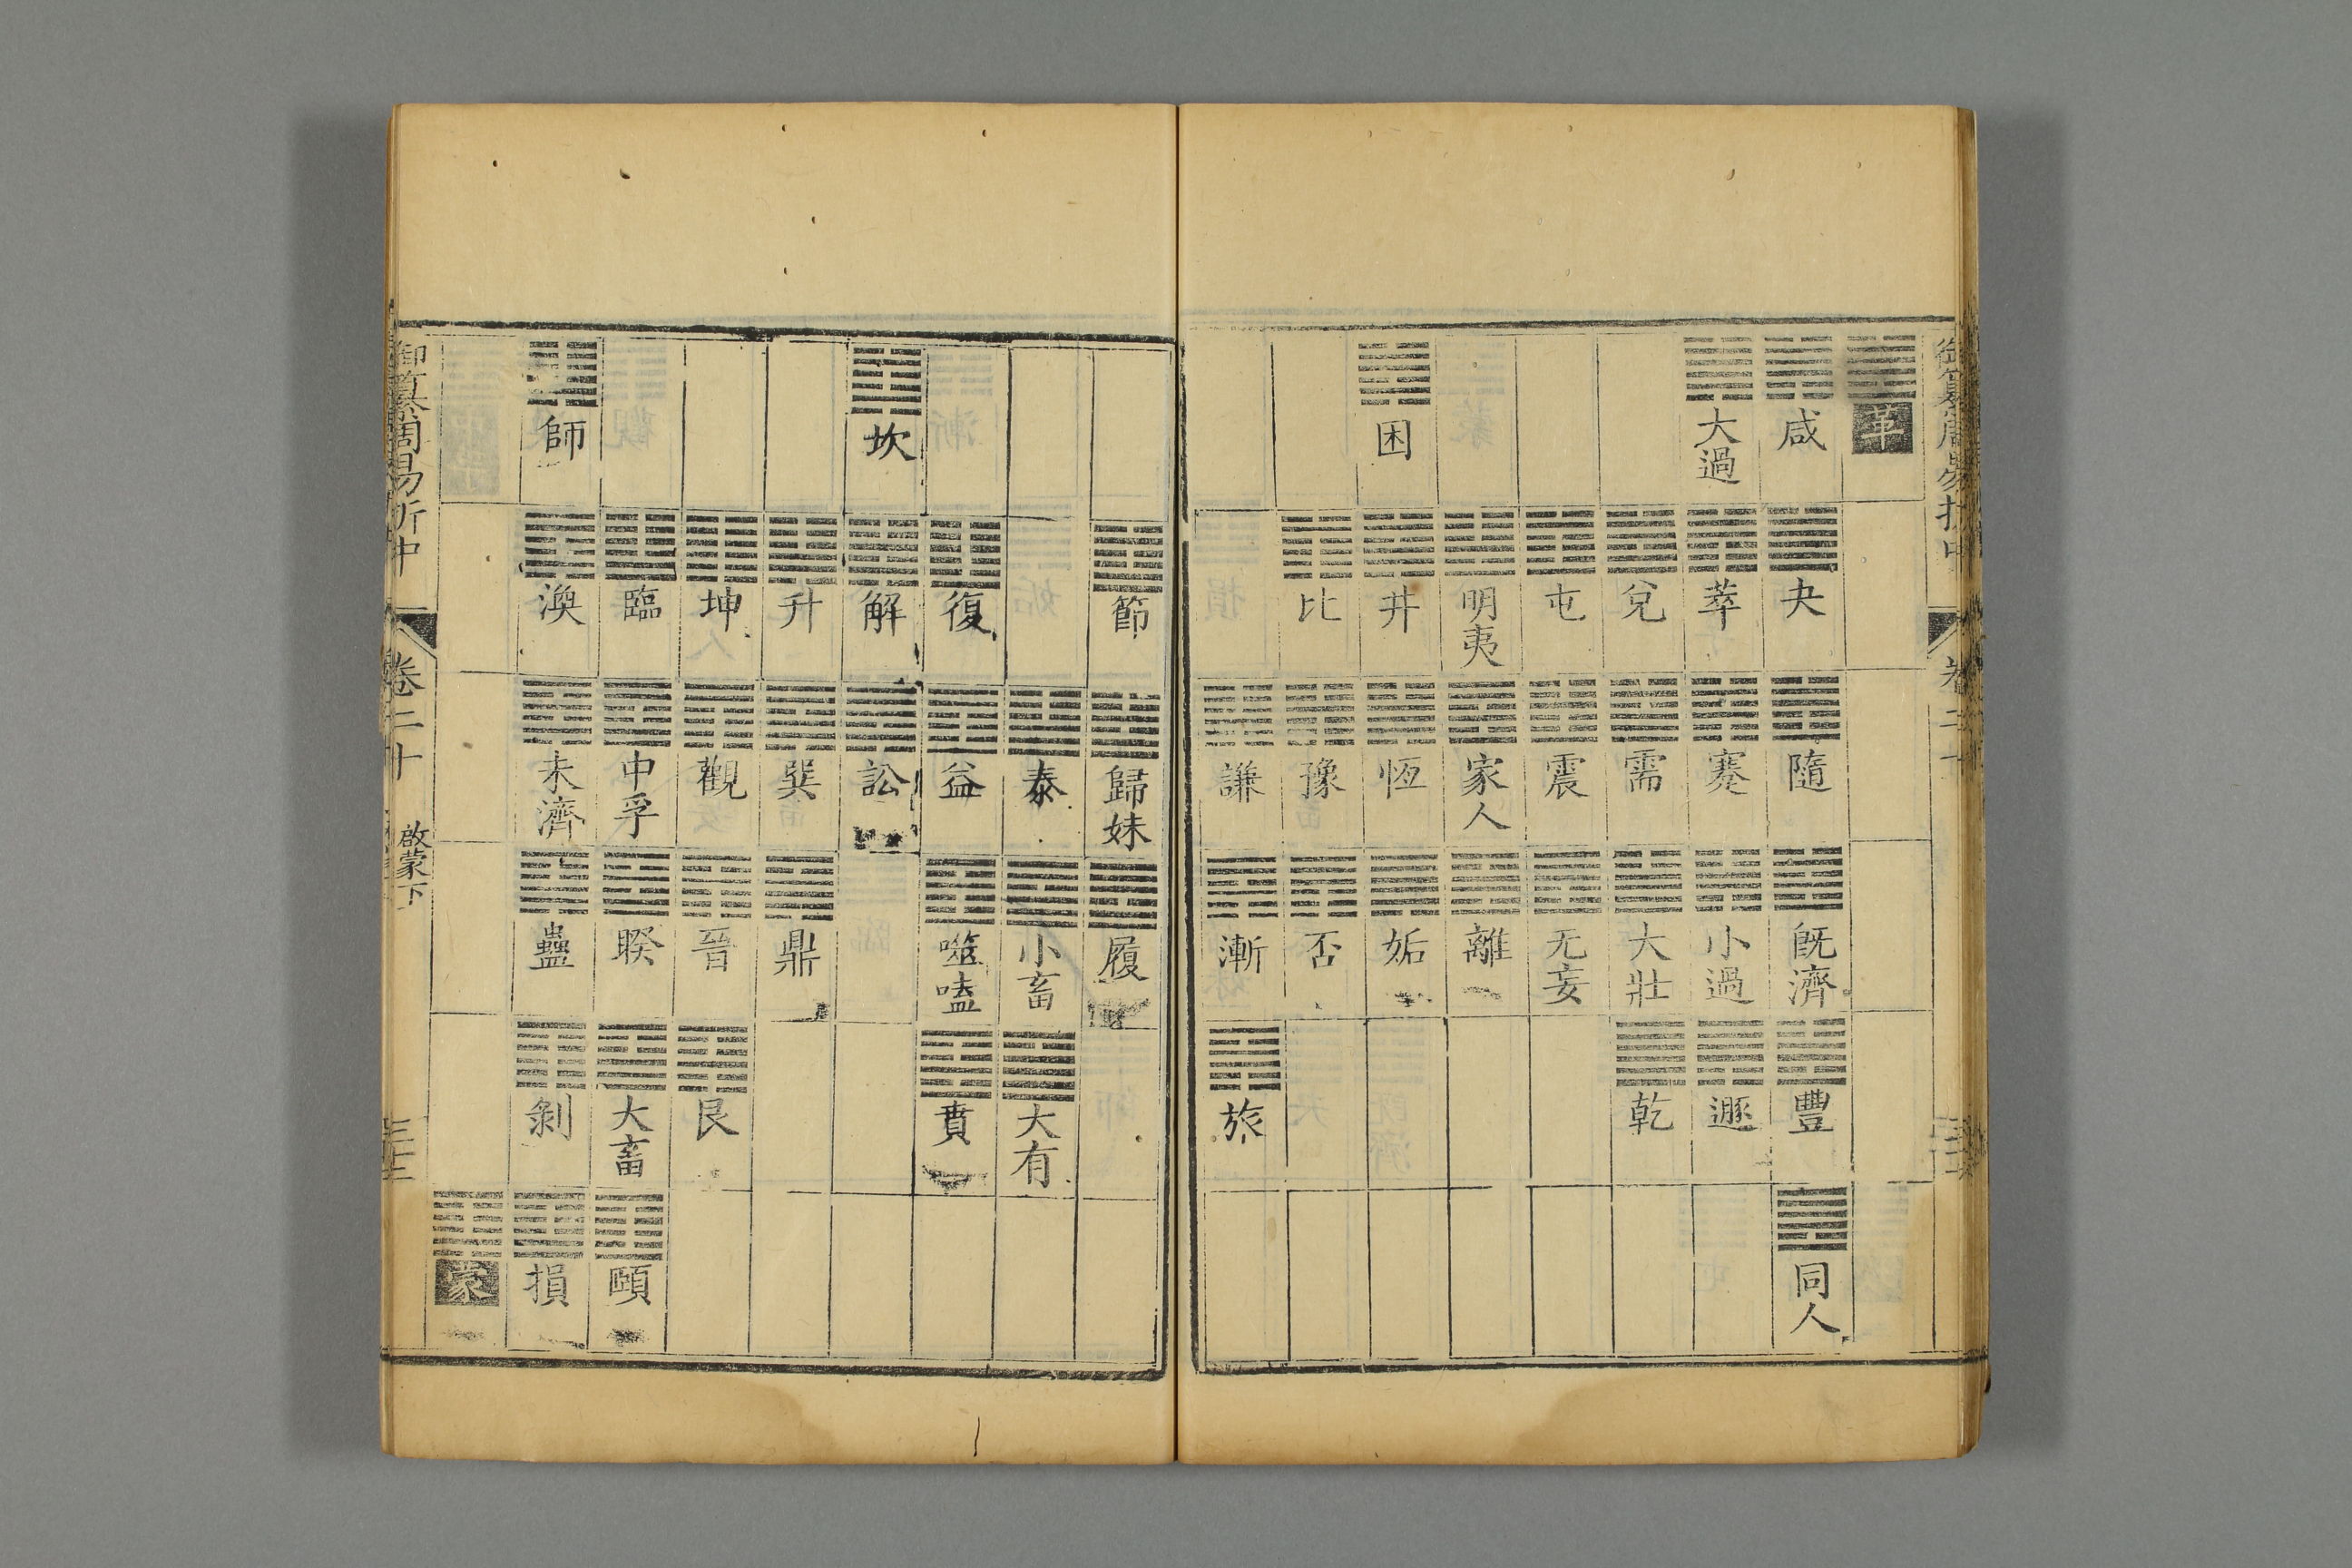 御纂周易折中 卷二十
革
咸 夬 隨 既濟 豐 同人
大過 萃 蹇 小過 遯
兌 需 大壯 乾
屯 震 无妄
明夷 家人 離
困 井 恆 姤
比 豫 否
謙 漸 旅
節 歸妹 履
泰 小畜 大有
復 益 噬嗑 賁
坎 解 訟
升 巽 鼎
坤 觀 晉 艮
臨 中孚 睽 大畜 頤
師 渙 未濟 蠱 剝 損
蒙
御纂周易折中 卷二十 啟蒙下